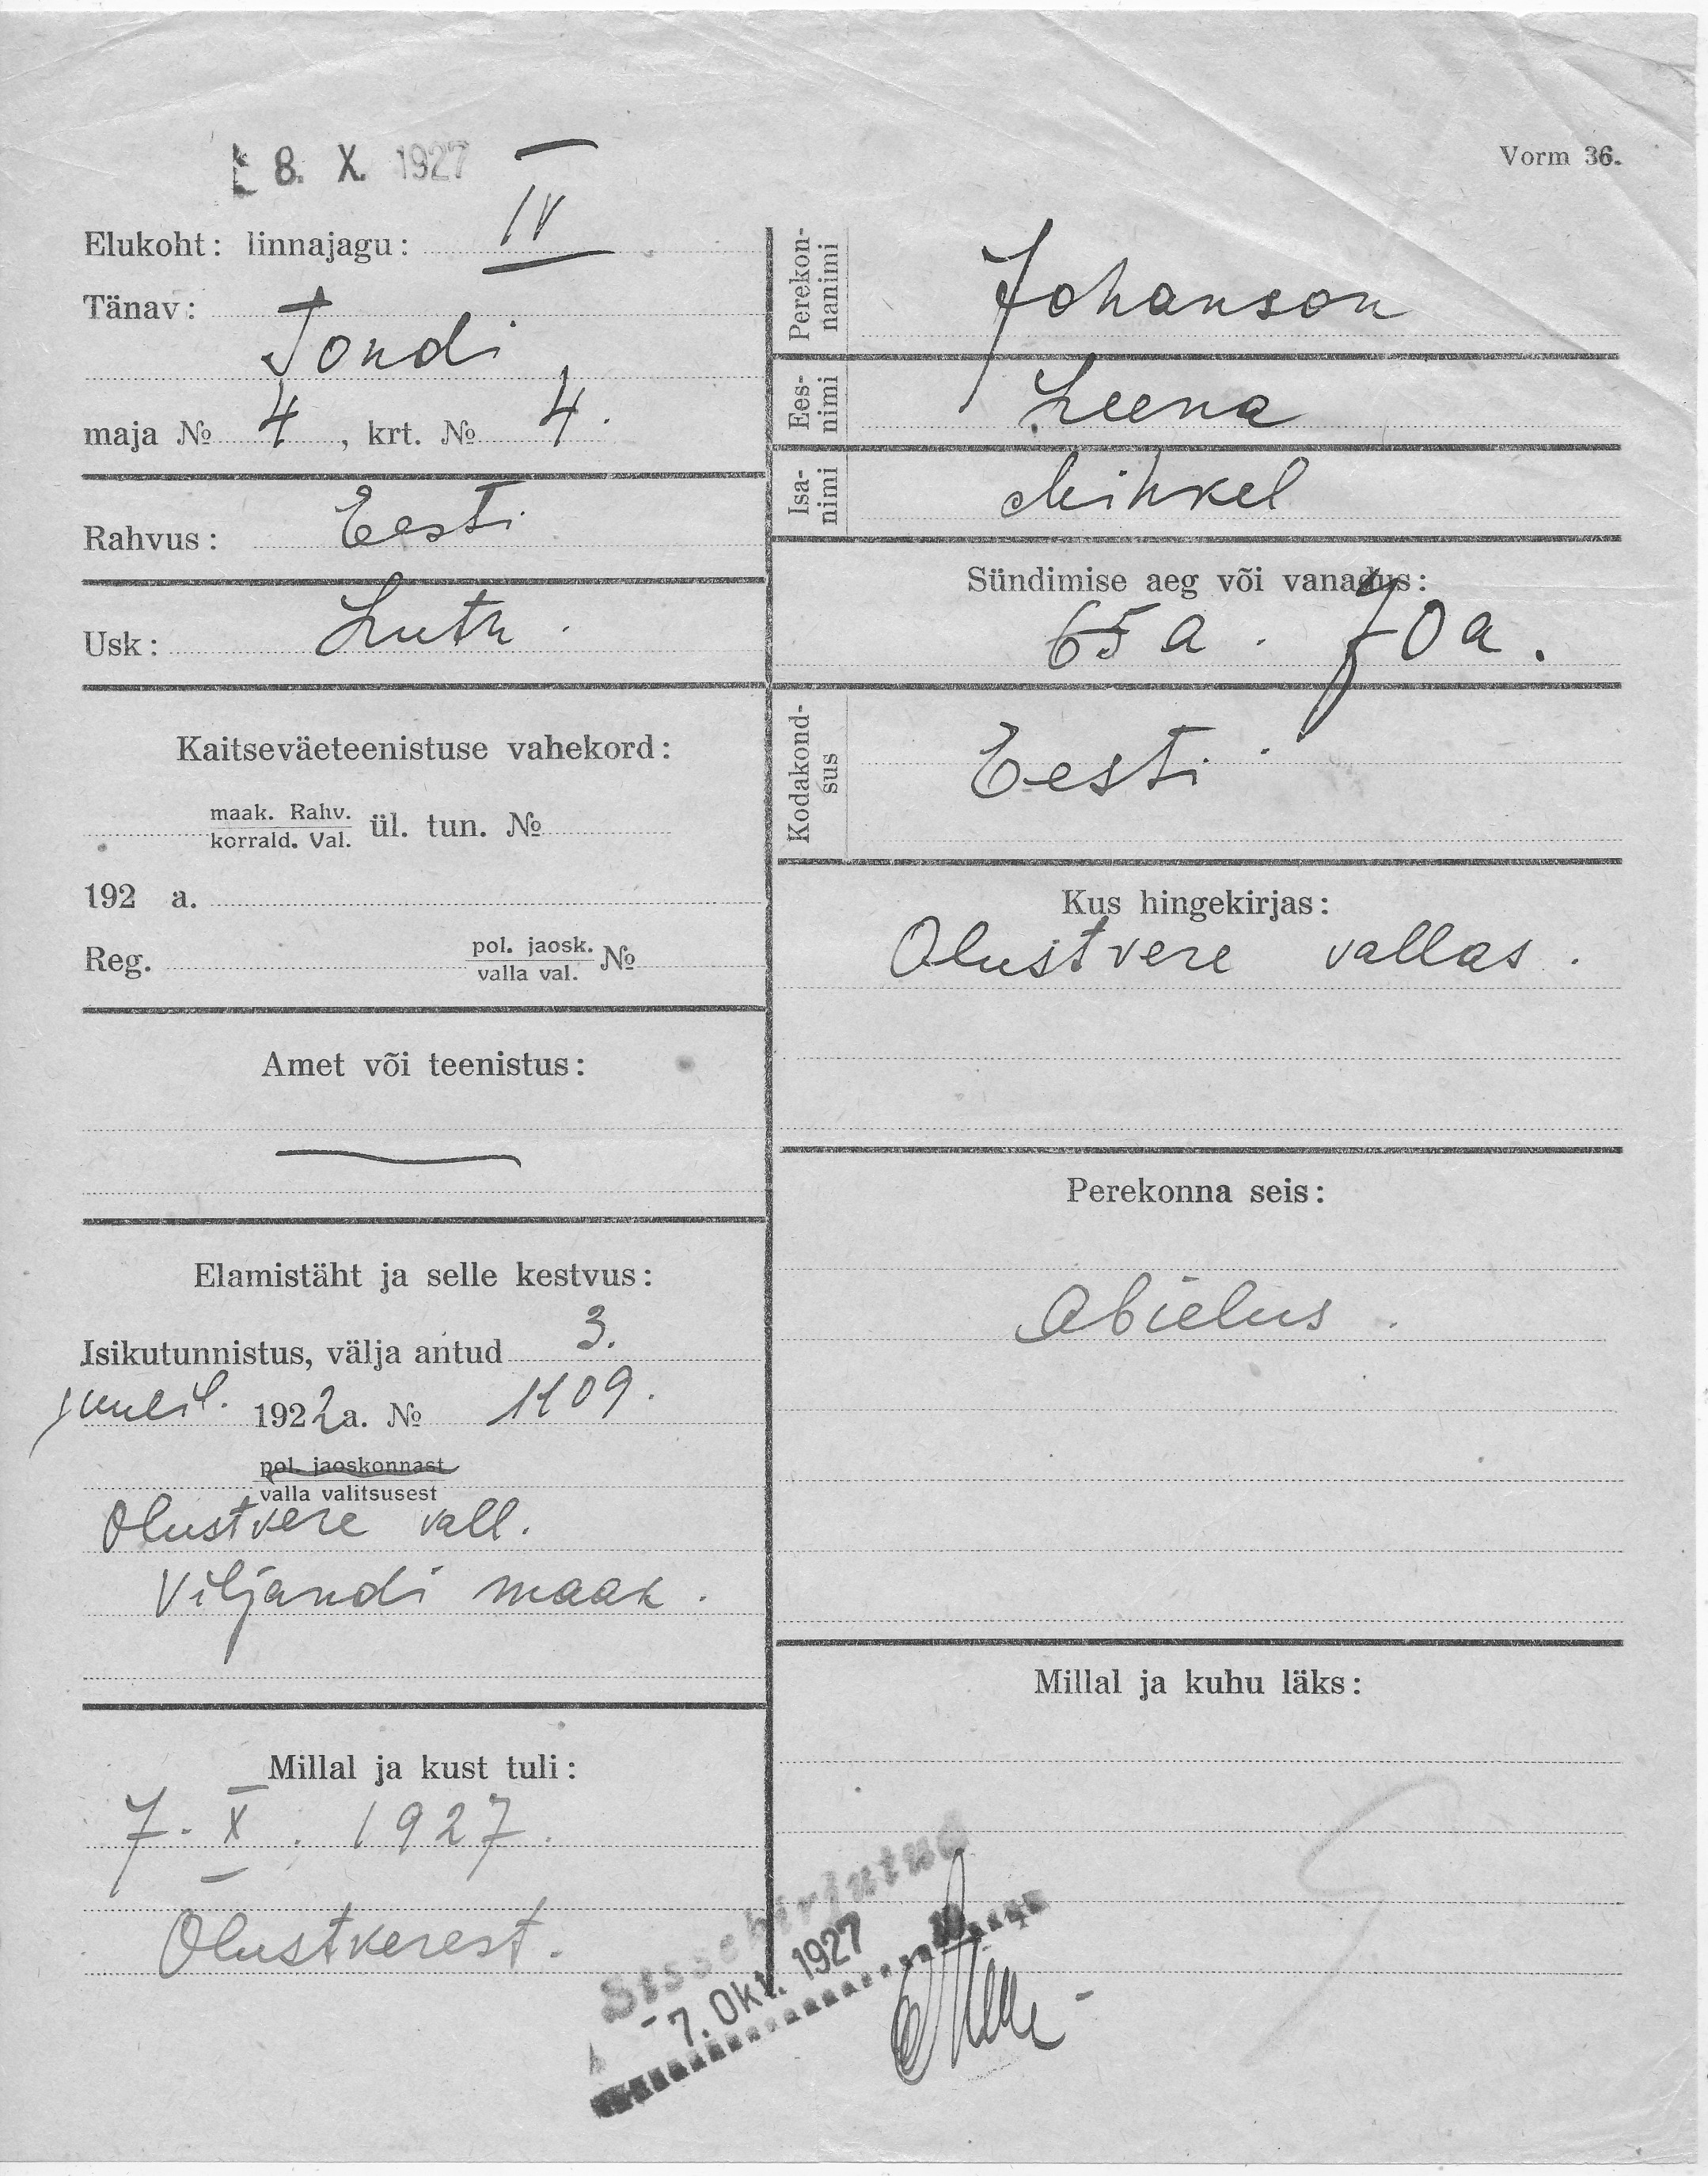 8. X. 1927
Vorm 36.
Elukoht: linnajagu: IV
Tänav:
Tondi
maja № 4, krt. № 4.
Rahvus: Eesti
Usk: Luth.
Kaitseväeteenistuse vahekord:
maak. Rahv.
korrald. Val. ül. tun. №
192 a.
Reg. pol. jaosk.
valla val. №
Amet või teenistus:
Elamistäht ja selle kestvus:
Isikutunnistus, välja antud 3.
juulil. 1922 a. № 1109.
pol. jaoskonnast
valla valitsusest
Olustvere vall.
Viljandi maak.
Millal ja kust tuli:
7. X. 1927.
Olustverest.
Perekon-
nanimi
Johanson
Ees-
nimi
Leena
Isa-
nimi
Mihkel
Sündimise aeg või vanadus:
65 a. 70 a.
Kodakond-
sus
Eesti
Kus hingekirjas:
Olustvere vallas.
Perekonna seis:
Abielus.
Millal ja kuhu läks:
Sissekirjutud
-7. Okt. 1927